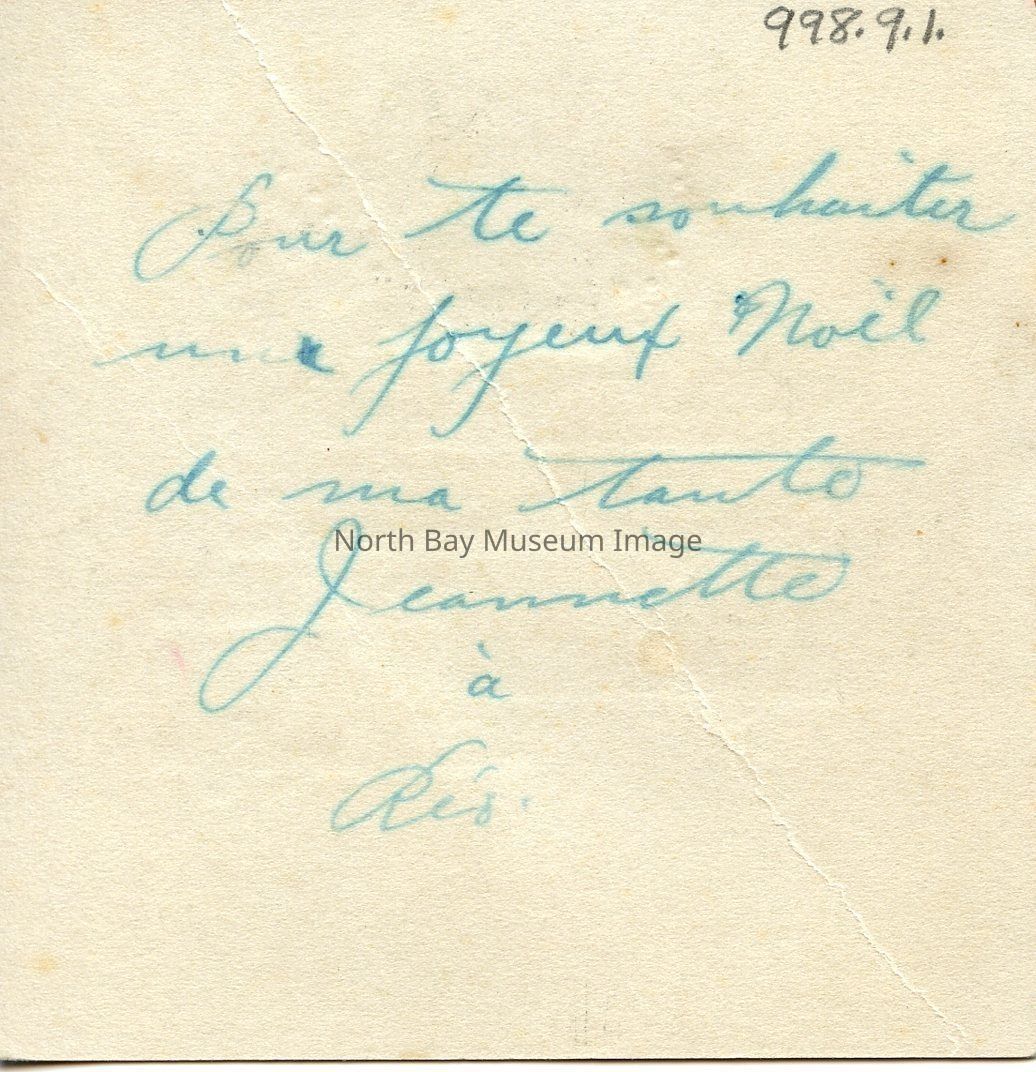 998.9.1.
Pour te souhaiter
une joyeux Noël
de ma tante
North Bay Museum Image
Jeannette
à